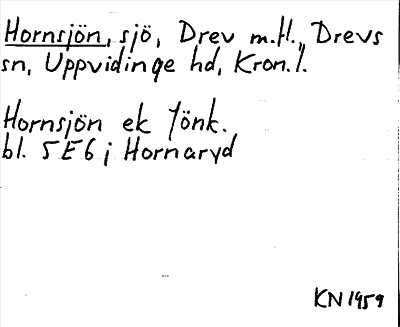 Hornsjön, sjö, Drev m.fl., Drevs
sn, Uppvidinge hd, Kron.l.
Hornsjön ek Jönk.
bl. 5E6 j Hornaryd
KN 1959